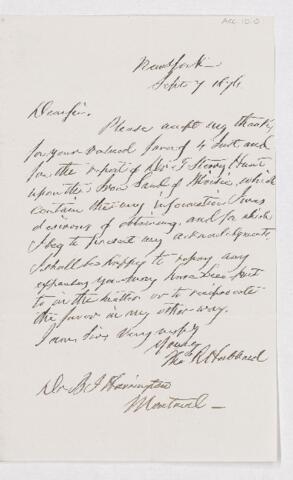 New York
Sept 7 1876
Dear Sir.
Please accept my thanks
for your valued favor of 4 Inst and
for the report of Dr T Sterry Hunt
upon the Iron Sand of Moisie, which
contain the very information I was
desirous of obtaining and for which
I beg to present my acknowledgments.
I shall be happy to repay any
expenses you may have been put
to in the matter or to reciprocate
the favor in any other way.
I am Sir Very resply
Yours
Thos R Hubbard
Dr B. J Harrington
Montreal